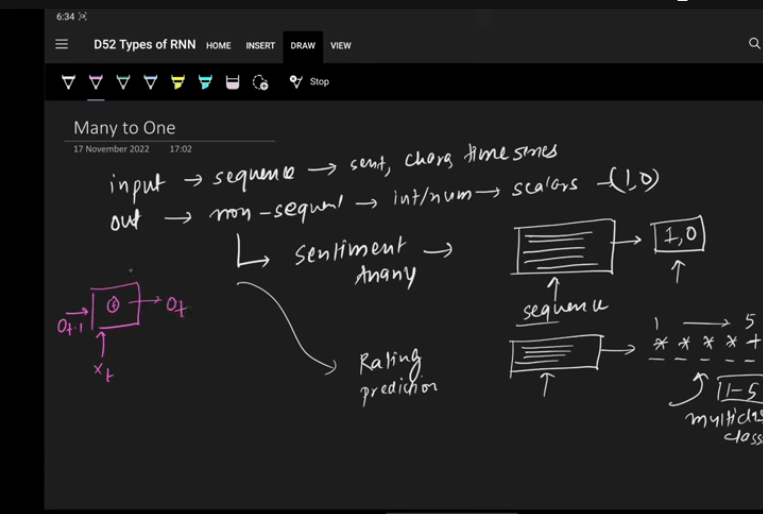 6:34
D52 Types of RNN HOME INSERT DRAW VIEW
Stop
Many to One
17 November 2022 17:02
input → sequence → sent, chars, time series
out → non-sequenl → int/num → scalars → (1,0)
Sentiment →
Anany
1,0
sequence
1 → 5
* * * * +
Rating
prediction
1-5
multiclas
class
O t-1 → O t
X t